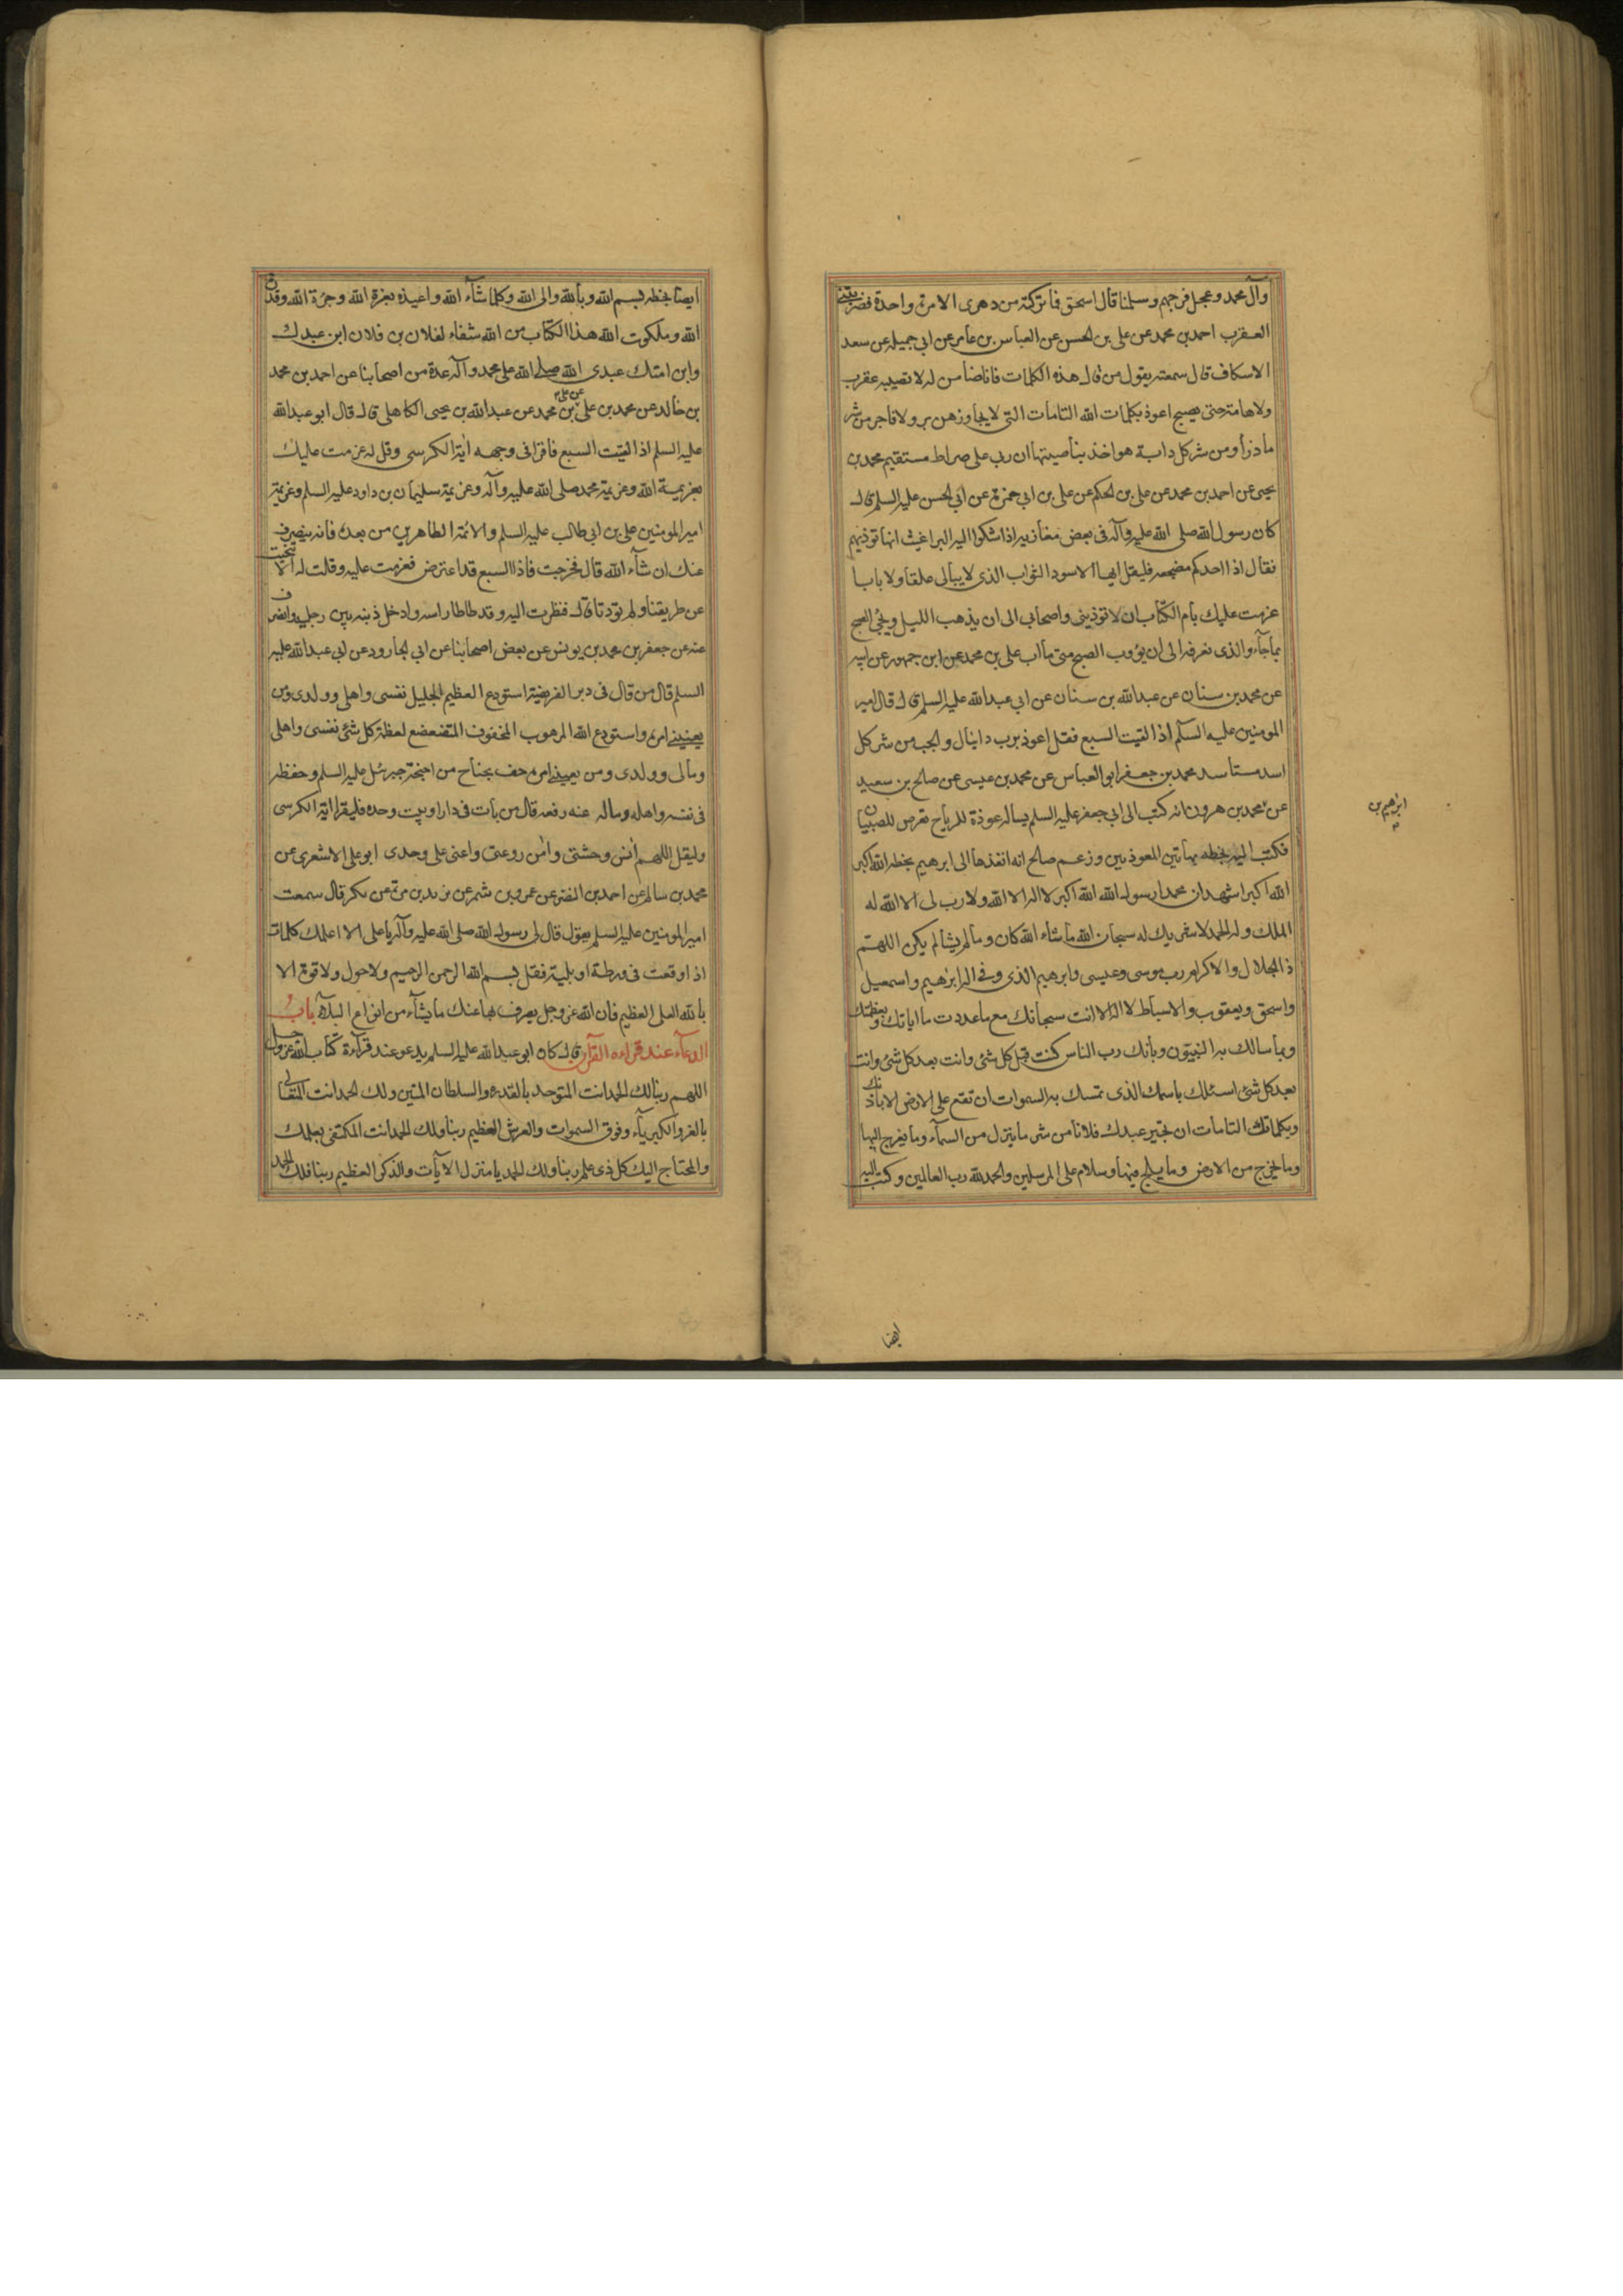 وآل محمد وعجل فرجهم وسلمنا قال اسحق فما تركته من دهرى الا مرة واحدة فضربتنى
العقرب احمد بن محمد عن على بن الحسن عن العباس بن عامر عن ابى جميله عن سعد
الاسكاف قال سمعته يقول من قال هذه الكلمات فانا ضامن له لا تصيبه عقرب
ولا هامة حتى يصبح اعوذ بكلمات الله التامات التى لا يجاوزهن بر ولا فاجر من شر
ما ذرأ ومن شر كل دابة هو اخذ بناصيتها ان رب على صراط مستقيم محمد بن
يحيى عن احمد بن محمد عن على بن الحكم عن على بن ابى حمزة عن ابى الحسن عليه السلم قال
كان رسول الله صلى الله عليه وآله فى بعض مغازيه اذا شكوا اليه البراغيث انها توذيهم
فقال اذا احدكم مضجعه فليقل ايها الاسود الثواب الذى لا يبالى علقا ولا بابا
عزمت عليك بام الكتاب ان لا توذينى واصحابى الى ان يذهب الليل ويجئ الصبح
بما جآء والذى نعرفه الى ان يؤوب الصبح متى ما اب على بن محمد عن ابن جمهور عن ابيه
عن محمد بن سنان عن عبد الله بن سنان عن ابى عبد الله عليه السلم قال قال امير
المومنين عليه السلم اذا لقيت السبع فقل اعوذ برب دانيال والجب من شر كل
اسد مستاسد محمد بن جعفر ابو العباس عن محمد بن عيسى عن صالح بن سعيد
عن محمد بن هرون انه كتب الى ابى جعفر عليه السلم يساله عوذة للرياح تعرض للصبيان
ابرهيم بن
فكتب اليه بخطه بهاتين المعوذتين وزعم صالح انه انفذها الى ابرهيم بخطه الله اكبر
الله اكبر اشهد ان محمدا رسول الله الله اكبر لا اله الا الله ولا رب لى الا الله له
الملك وله الحمد لا شريك له سبحان الله ما شاء الله كان وما لم يشا لم يكن اللهم
ذا الجلال والاكرام رب موسى وعيسى وابرهيم الذى وفى اله ابرهيم واسمعيل
واسحق ويعقوب والاسباط لا اله الا انت سبحانك مع ما عددت من اياتك وبعظمتك
وبما سالك به النبيون وبانك رب الناس كنت قبل كل شئ وانت بعد كل شئ وانت
بعد كل شئ اسئلك باسمك الذى تمسك به السموات ان تقع على الارض الا باذنك
وبكلماتك التامات ان تجير عبدك فلانا من شر ما ينزل من السمآء وما يعرج اليها
وما يخرج من الارض وما يلج فيها وسلام على المرسلين والحمد لله رب العالمين وكتب اليه
ايضا
ايضا بخطه بسم الله وبالله والى الله وكما شآء الله واعيذه بعزة الله وجبرة الله وقدرة
الله وملكوت الله هذا الكتاب من الله شفاء لفلان بن فلان ابن عبدك
وابن امتك عبدى الله صلى الله على محمد وآله عدة من اصحابنا عن احمد بن محمد
بن خالد عن محمد بن على عن على بن محمد عن عبد الله بن يحيى الكاهلى قال قال ابو عبد الله
عليه السلم اذا لقيت السبع فاقرا فى وجهه اية الكرسى وقل له عزمت عليك
بعزيمة الله وعزيمة محمد صلى الله عليه وآله وعزيمة سليمان بن داود عليه السلم وعزيمة
امير المومنين على بن ابى طالب عليه السلم والائمة الطاهرين من بعده فانه ينصرف
عنك ان شآء الله قال فخرجت فاذا السبع قد اعترض فعزمت عليه وقلت له الا تنحيت
عن طريقنا ولم توذنا قال فنظرت اليه وقد طاطا راسه وادخل ذنبه بين رجليه وانصرف
عنه عن جعفر بن محمد بن يونس عن بعض اصحابنا عن ابى الجارود عن ابى عبد الله عليه
السلم قال من قال فى دبر الفريضة استودع العظيم الجليل نفسى واهلى وولدى ومن
يعنينى امره واستودع الله المرهوب المخوف المتضعضع لعظمته كل شئ نفسى واهلى
ومالى وولدى ومن يعنينى امره حف بجناح من اجنحة جبرئيل عليه السلم وحفظ
فى نفسه واهله وماله عنه رفعه قال من بات فى دار او بيت وحده فليقرا اية الكرسى
وليقل اللهم انس وحشتى وامن روعتى واعنى على وحدى ابو على الاشعرى عن
محمد بن سالم عن احمد بن النضر عن عمرو بن شمر عن يزيد بن مرة عن بكر قال سمعت
امير المومنين عليه السلم يقول قال لى رسول الله صلى الله عليه وآله يا على الا اعلمك كلمات
اذا وقعت فى ورطة او بلية فقل بسم الله الرحمن الرحيم ولا حول ولا قوة الا
بالله العلى العظيم فان الله عز وجل يصرف بها عنك ما يشآء من انواع البلآء باب
الدعآء عند قراءة القرآن قال كان ابو عبد الله عليه السلم يدعو عند قرآءة كتاب الله عز وجل
اللهم ربنا لك الحمد انت المتوحد بالقدرة والسلطان المتين ولك الحمد انت المتعالى
بالعز والكبريآء وفوق السموات والعرش العظيم ربنا ولك الحمد انت المكتفى بعلمك
والمحتاج اليك كل ذى علم ربنا ولك الحمد يا منزل الآيات والذكر العظيم ربنا فلك الحمد